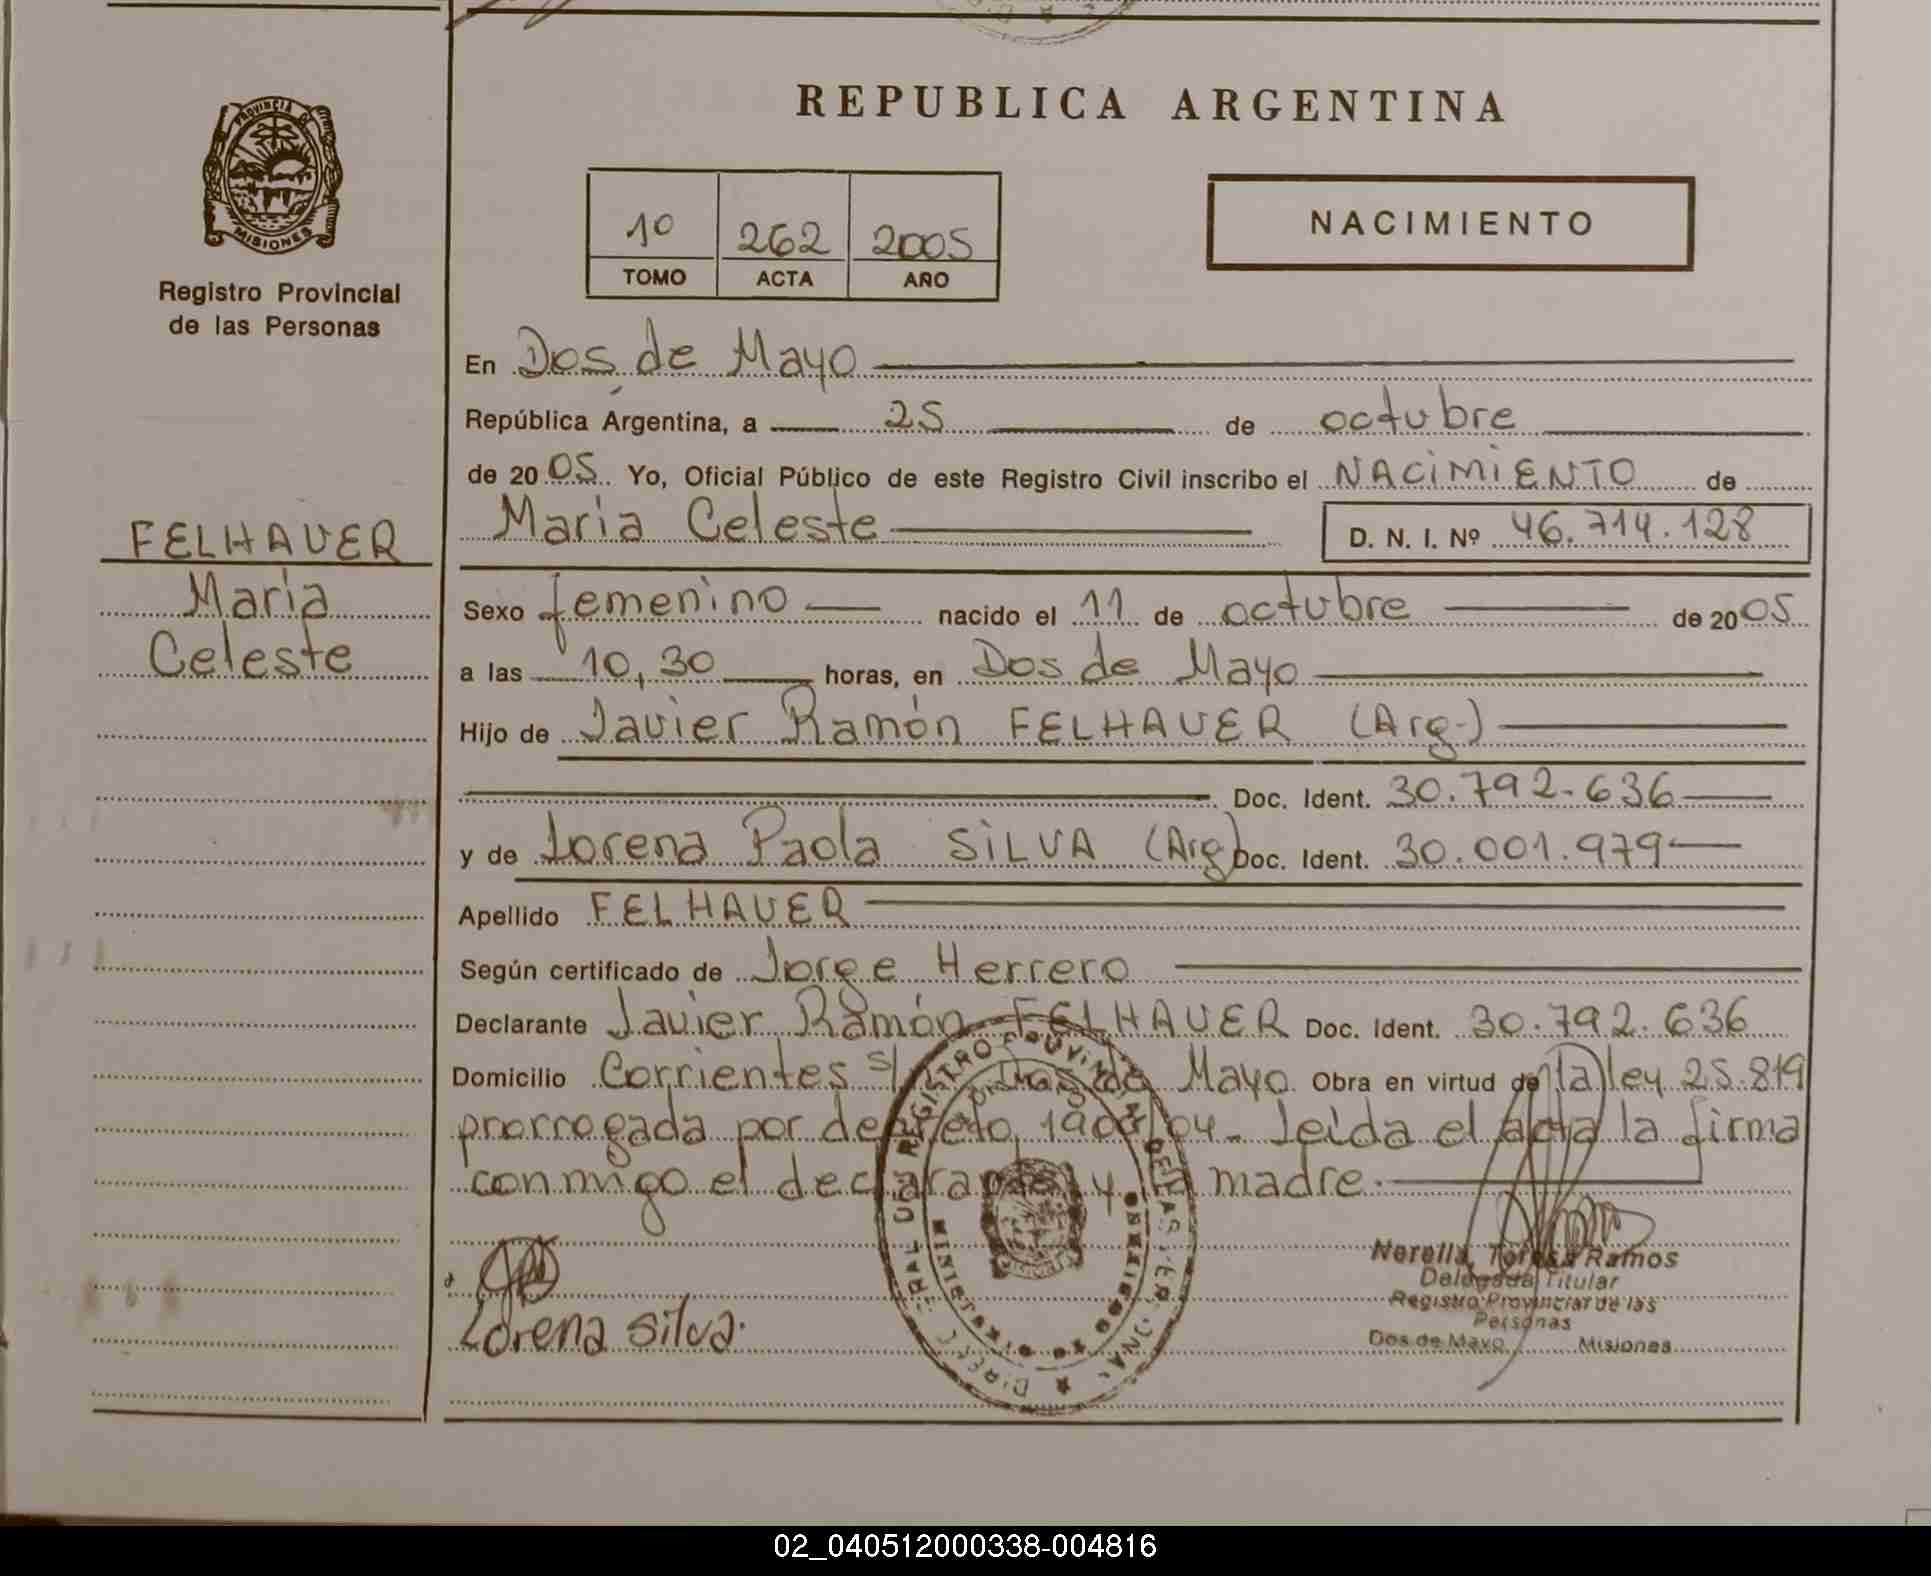 REPUBLICA ARGENTINA
PROVINCIA DE
MISIONES
Registro Provincial
de las Personas
10 262 2005
TOMO ACTA AÑO
NACIMIENTO
En Dos de Mayo
República Argentina, a 25 de octubre
de 2005 Yo, Oficial Público de este Registro Civil inscribo el NACIMIENTO de
Maria Celeste D. N. I. Nº 46.714.128
FELHAUER
Maria
Celeste
Sexo femenino nacido el 11 de octubre de 2005
a las 10,30 horas, en Dos de Mayo
Hijo de Javier Ramón FELHAUER (Arg.)
Doc. Ident. 30.792.636
y de Lorena Paola SILVA (Arg) Doc. Ident. 30.001.979
Apellido FELHAUER
Según certificado de Jorge Herrero
Declarante Javier Ramón FELHAUER Doc. Ident. 30.792.636
Domicilio Corrientes s/ Dos de Mayo Obra en virtud de la ley 25.819
prorrogada por decreto /04. Leida el acta la firma
conmigo el declarante y la madre.
Lorena Silva.
Ramos
Delegada Titular
Registro Provincial de las
Personas
Dos de Mayo Misiones
02_040512000338-004816